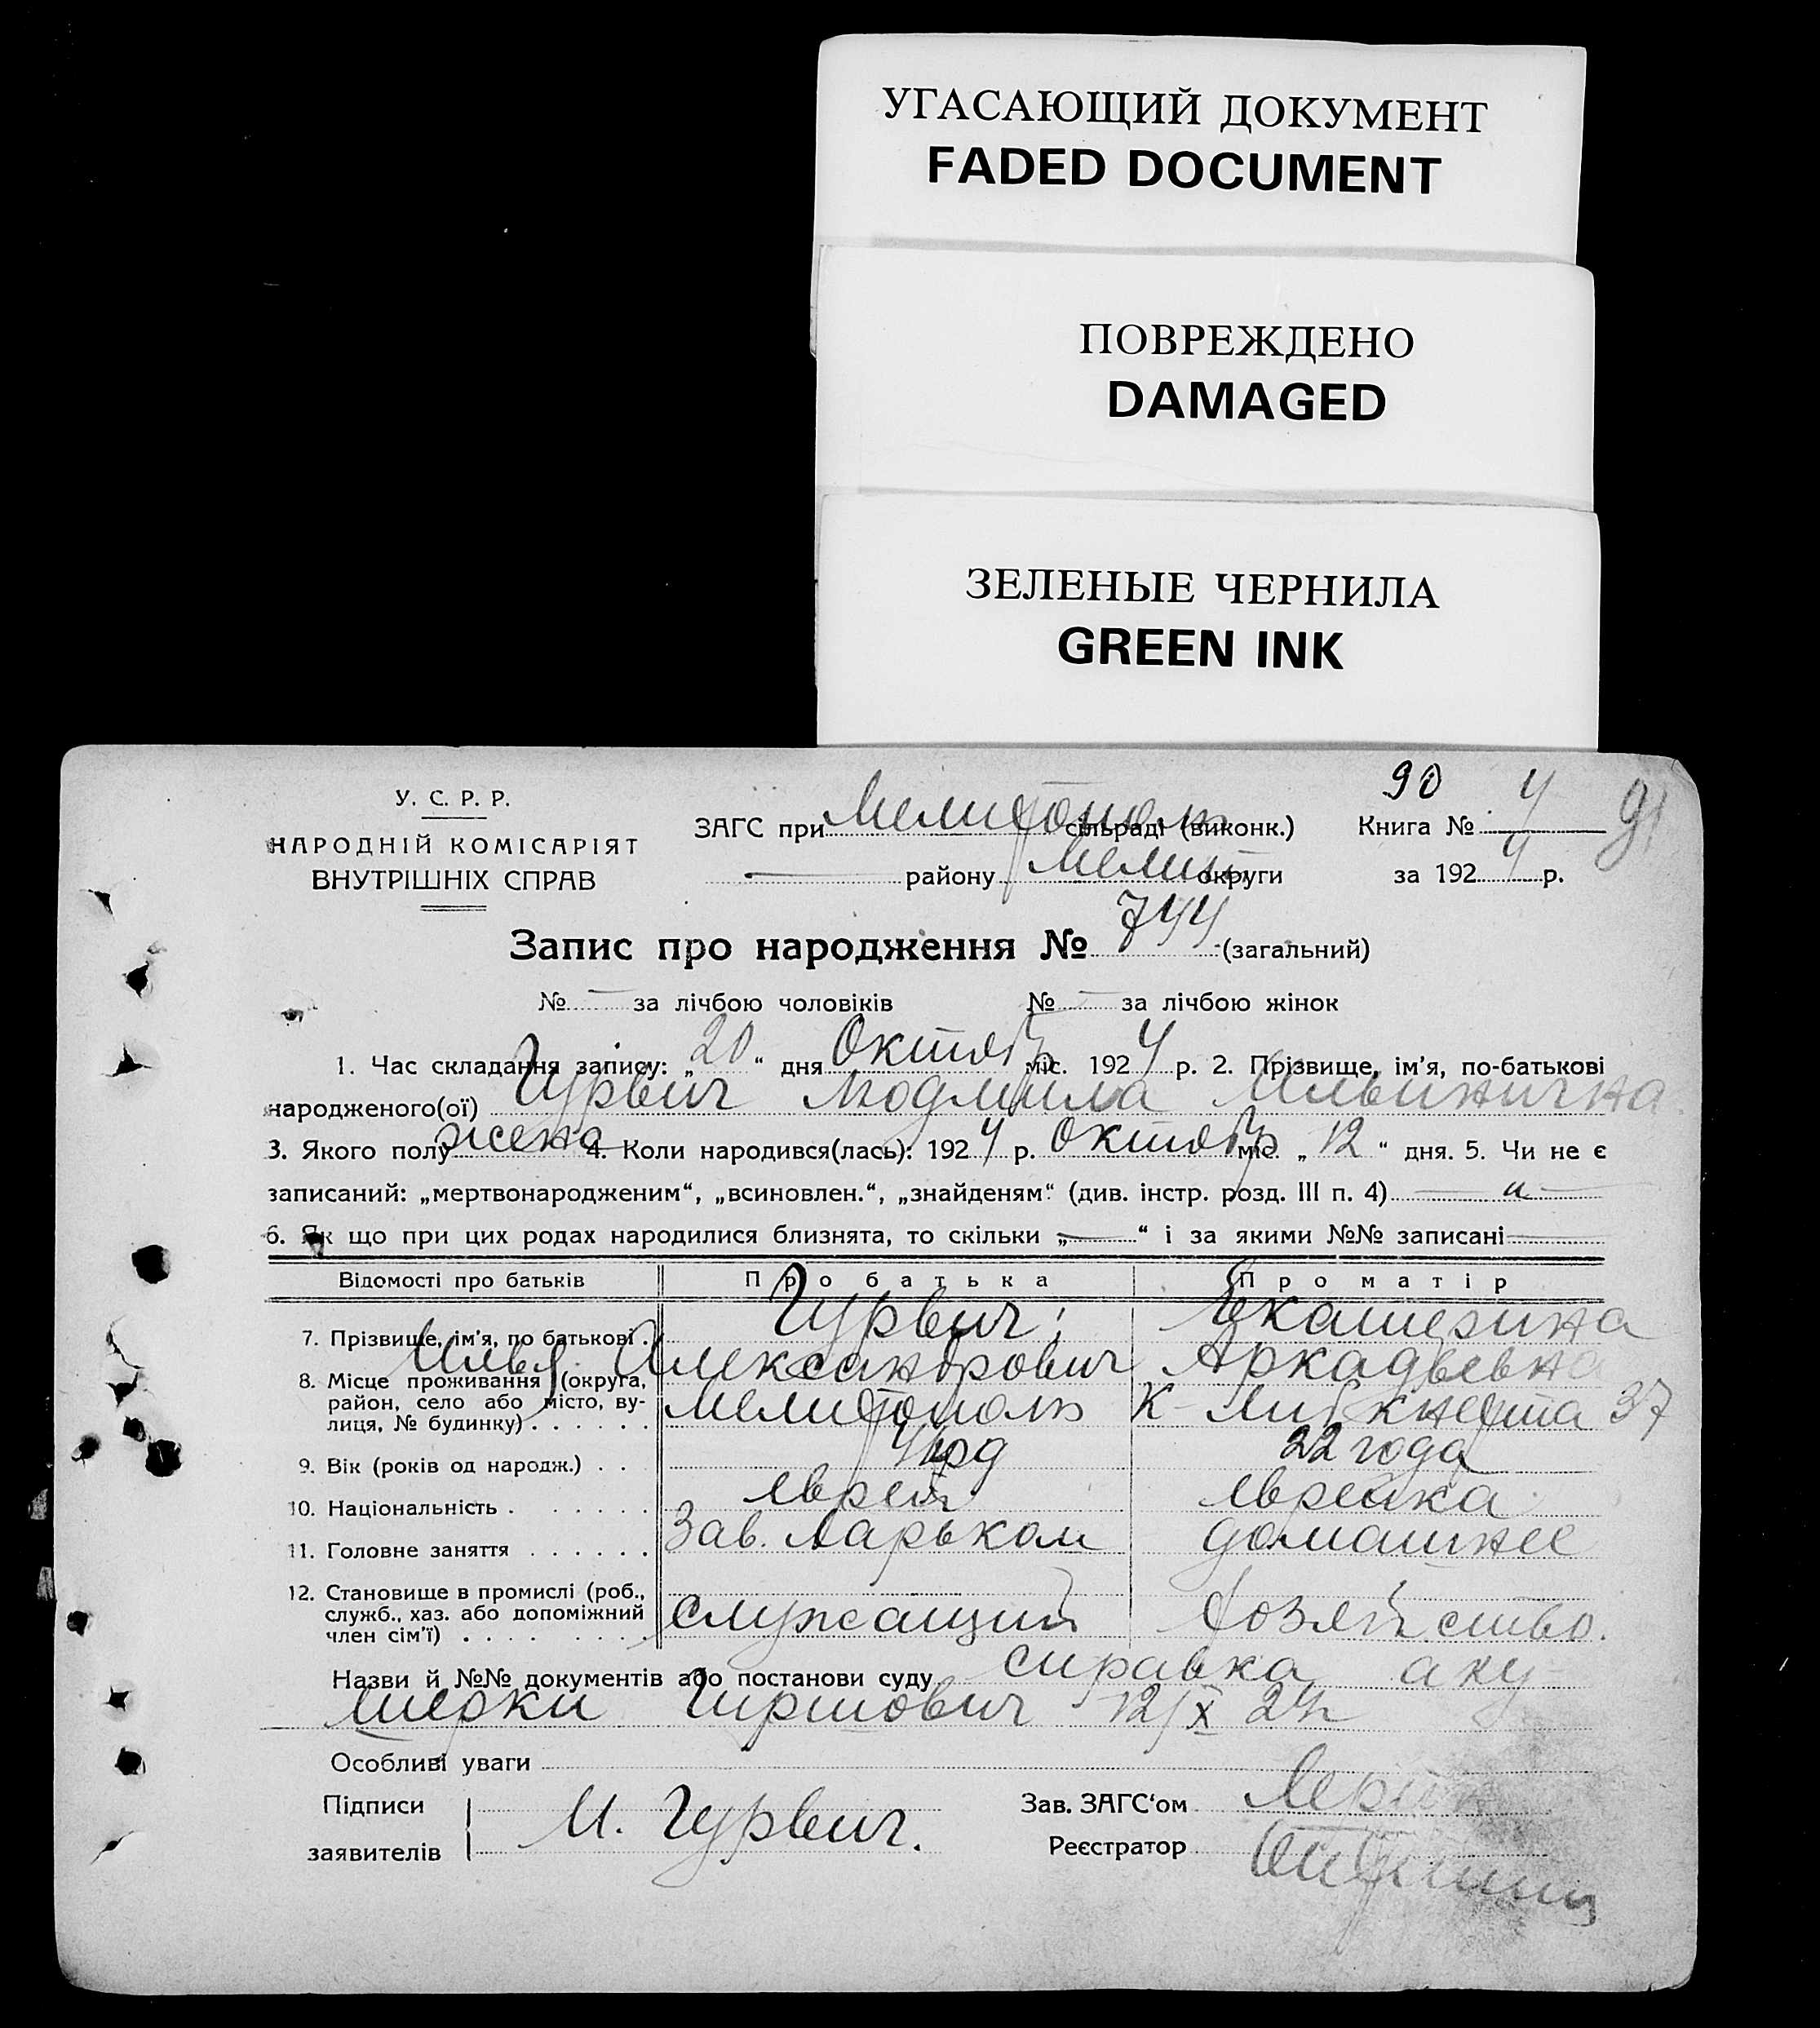 УГАСАЮЩИЙ ДОКУМЕНТ
FADED DOCUMENT
ПОВРЕЖДЕНО
DAMAGED
ЗЕЛЕНЫЕ ЧЕРНИЛА
GREEN INK
90 4 91
У. С. Р. Р.
НАРОДНІЙ КОМІСАРІЯТ
ВНУТРІШНІХ СПРАВ
ЗАГС при Мелитополь сільраді (виконк.) Книга № 4
району Мелит. округи за 1924 р.
Запис про народження № 744 (загальний)
№ — за лічбою чоловіків № — за лічбою жінок
1. Час складання запису: „20“ дня Октябр міс. 1924 р. 2. Прізвище, ім'я, по-батькові
народженого(ої) Гурвич Людмила Ильинична
3. Якого полу жена 4. Коли народився(лась): 1924 р. Октябр міс. „12“ дня. 5. Чи не є
записаний: „мертвонародженим“, „всиновлен.“, „знайденям“ (див. інстр. розд. III п. 4)
6. Як що при цих родах народилися близнята, то скільки „—“ і за якими №№ записані —
Відомості про батьків Про батька Про матір
7. Прізвище, ім'я, по батькові . Гурвич; Екатерина
Илья Александрович Аркадьевна
8. Місце проживання (округа, район, село або місто, вулиця, № будинку) . . . . . Мелитополь К-Либкнехта 37
9. Вік (років од народж.) . . 22 года
10. Національність . . . . . . еврей еврейка
11. Головне заняття . . . . . . Зав. ларьком домашнее
12. Становище в промислі (роб., служб., хаз. або допоміжний член сім'ї) . . . . . . . . служащий хозяйство.
Назви й №№ документів або постанови суду справка аку-
шерки Гиршович 12/X 24 г
Особливі уваги
Підписи заявителів И. Гурвич.
Зав. ЗАГС'ом
Реєстратор